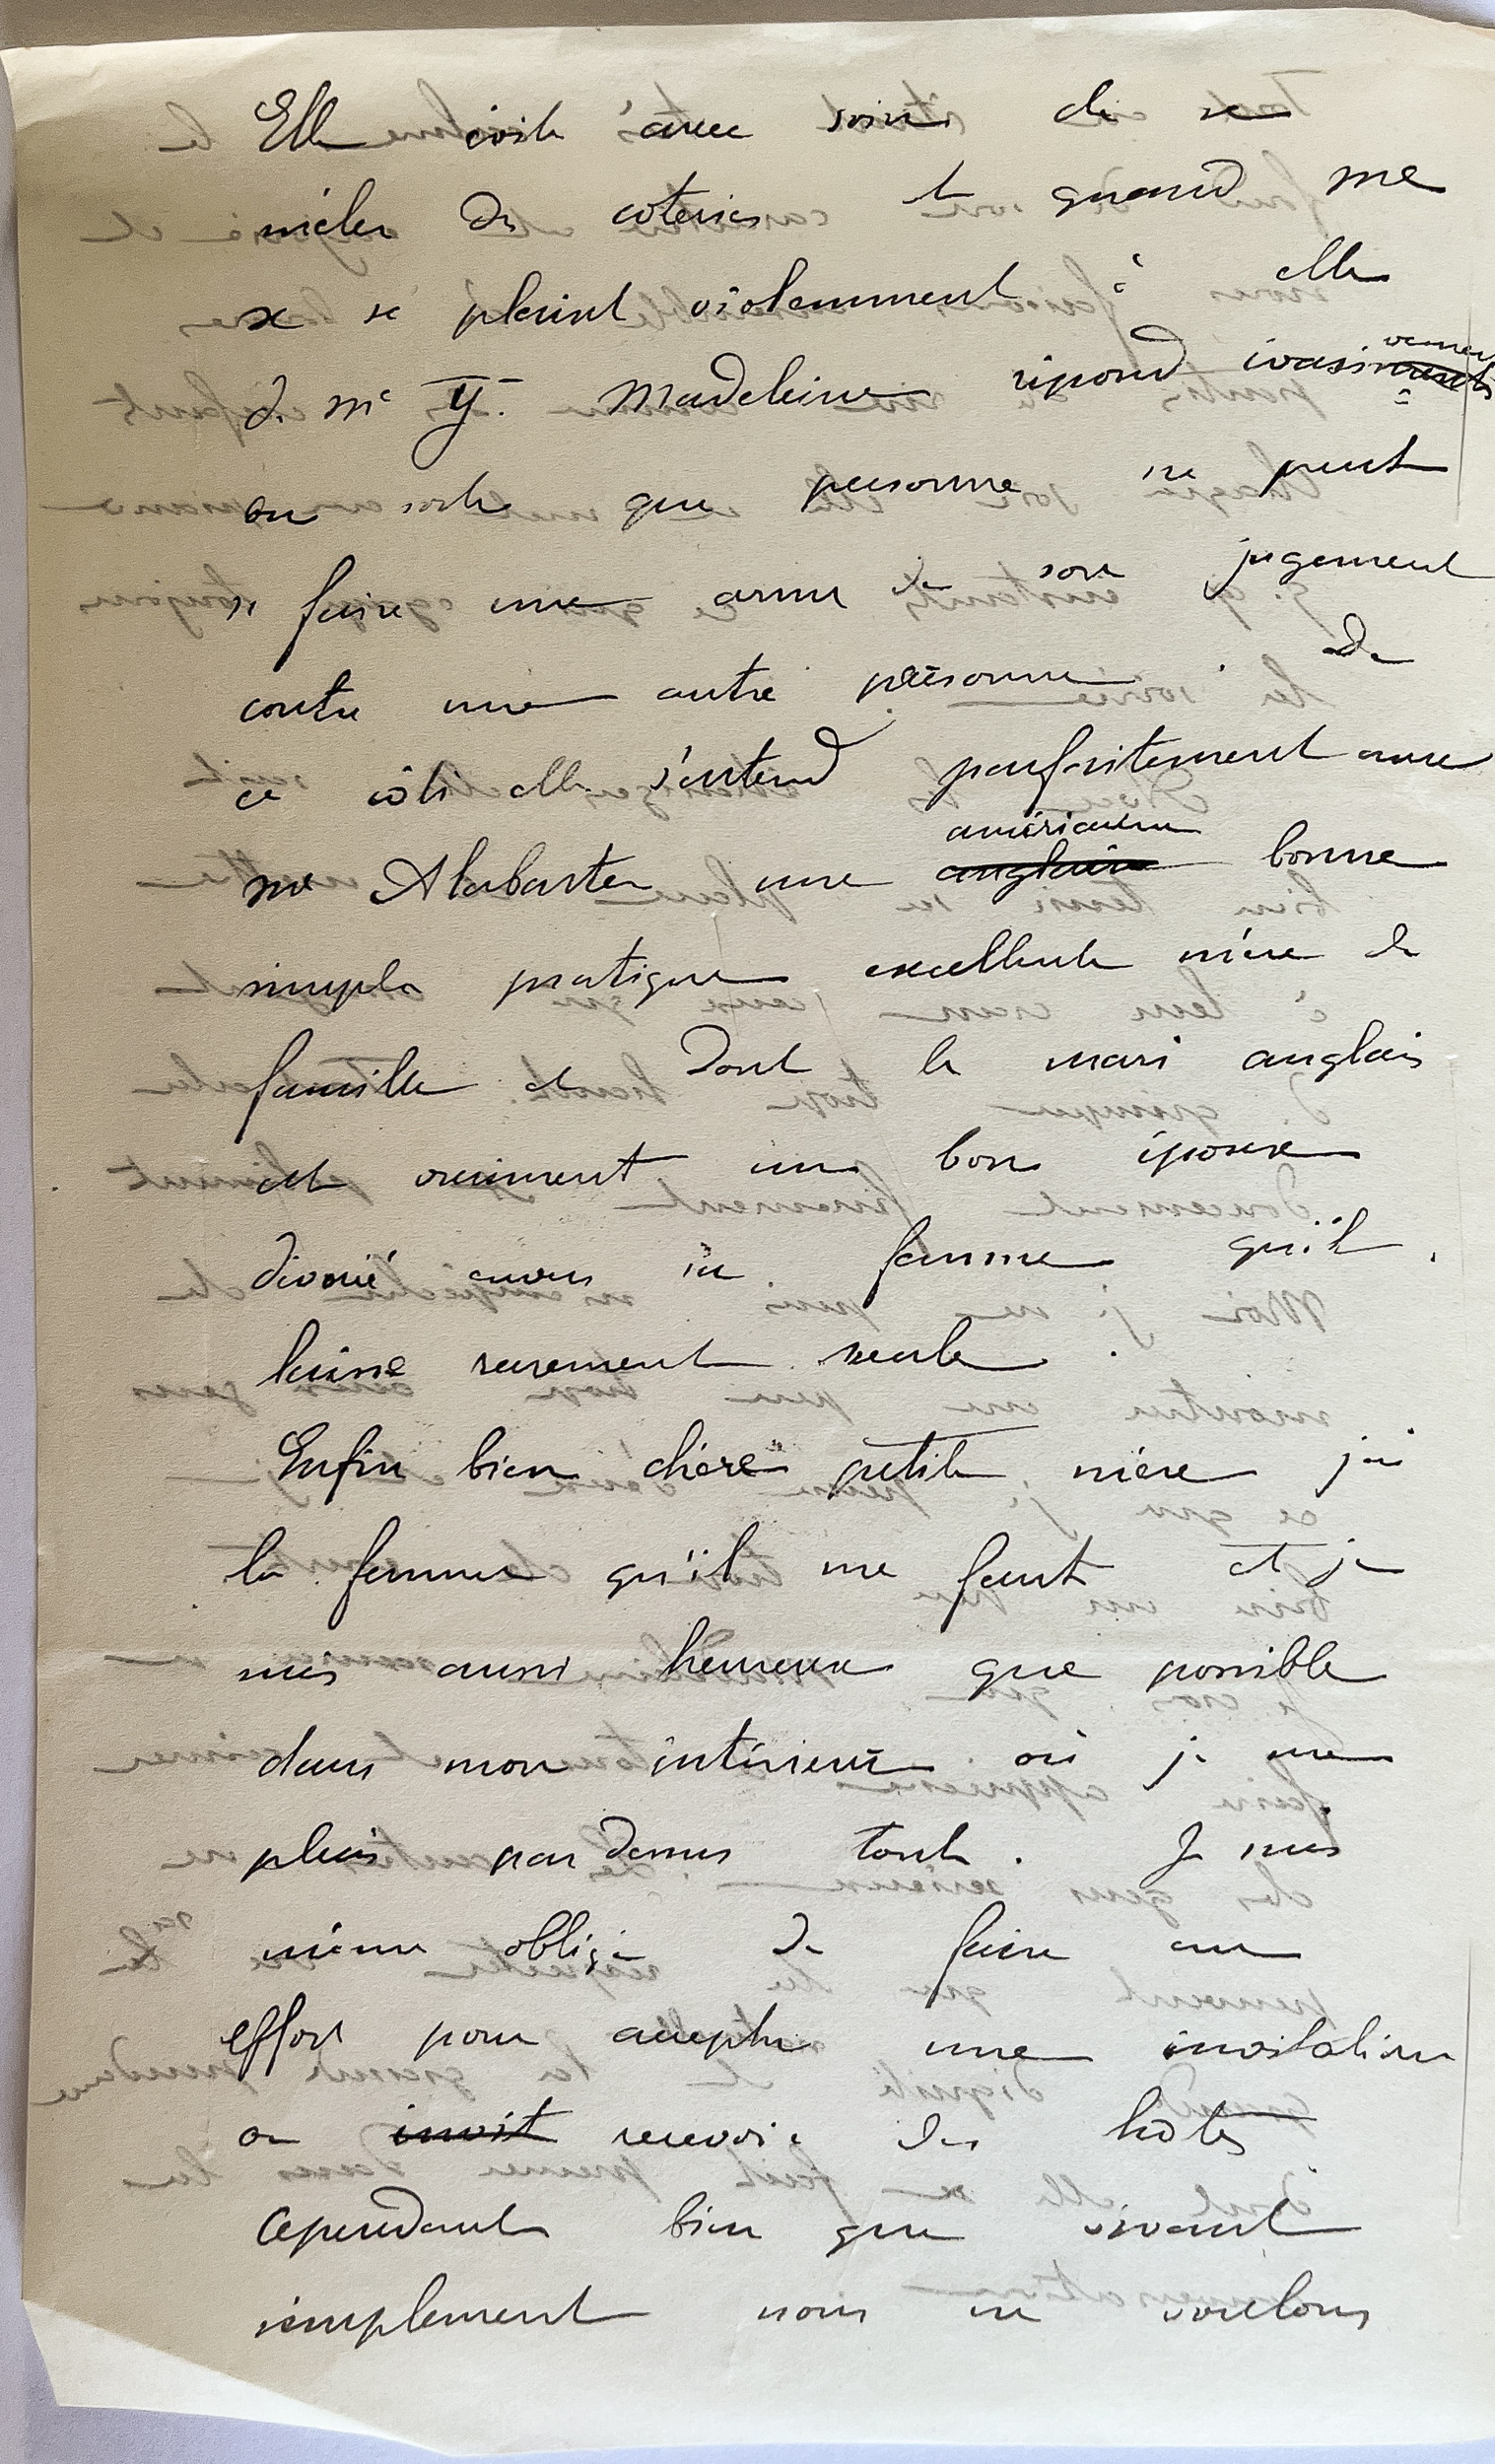 Elle évite avec soin de se
mêler des coteries et quand Me
X se plaint violemment à elle
de Me Y. Madeleine répond évasivement
en sorte que personne ne peut
se faire une arme de son jugement
contre une autre personne. De
ce côté elle s'entend parfaitement avec
Me Alabaster une américaine anglaise bonne
simple pratique excellente mère de
famille et dont le mari anglais
est vraiment un bon époux
dévoué envers sa femme qu'il
laisse rarement seule.
Enfin bien chère petite mère j'ai
la femme qu'il me faut et je
suis aussi heureux que possible
dans mon intérieur où je me
plais par dessus tout. Je suis
même obligé de faire un
effort pour accepter une invitation
ou invit recevoir des hôtes
Cependant bien que vivant
simplement nous ne voulons